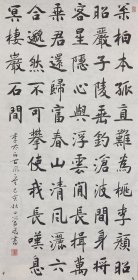 松柏本孤直難為桃李顏昭
昭嚴子陵垂釣滄波間身將
客星隱心與浮雲閑長揖萬
乘君還歸富春山清風灑六
合邈然不可攀使我長嘆息
冥棲巖石間
李太白古風